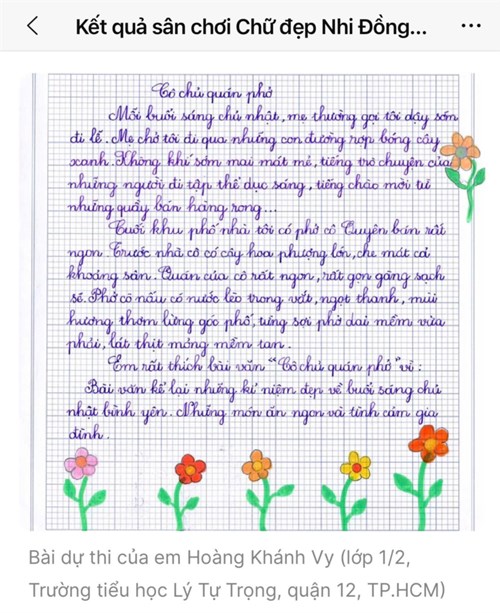 Kết quả sân chơi Chữ đẹp Nhi Đồng...
Cô chủ quán phở
Mỗi buổi sáng chủ nhật, mẹ thường gọi tôi dậy sớm
đi lễ. Mẹ chở tôi đi qua những con đường rợp bóng cây
xanh. Không khí sớm mai mát mẻ, tiếng trò chuyện của
những người đi tập thể dục sáng, tiếng chào mời từ
những quầy bán hàng rong...
Cuối khu phố nhà tôi có phở cô Quyên bán rất
ngon. Trước nhà cô có cây hoa phượng lớn, che mát cả
khoảng sân. Quán của cô rất ngon, rất gọn gàng sạch
sẽ. Phở cô nấu có nước lèo trong vắt, ngọt thanh, mùi
hương thơm lừng góc phố, từng sợi phở dai mềm vừa
phải, lát thịt mỏng mềm tan.
Em rất thích bài văn "Cô chủ quán phở" vì:
Bài văn kể lại những kỉ niệm đẹp về buổi sáng chủ
nhật bình yên. Những món ăn ngon và tình cảm gia
đình.
Bài dự thi của em Hoàng Khánh Vy (lớp 1/2,
Trường tiểu học Lý Tự Trọng, quận 12, TP.HCM)